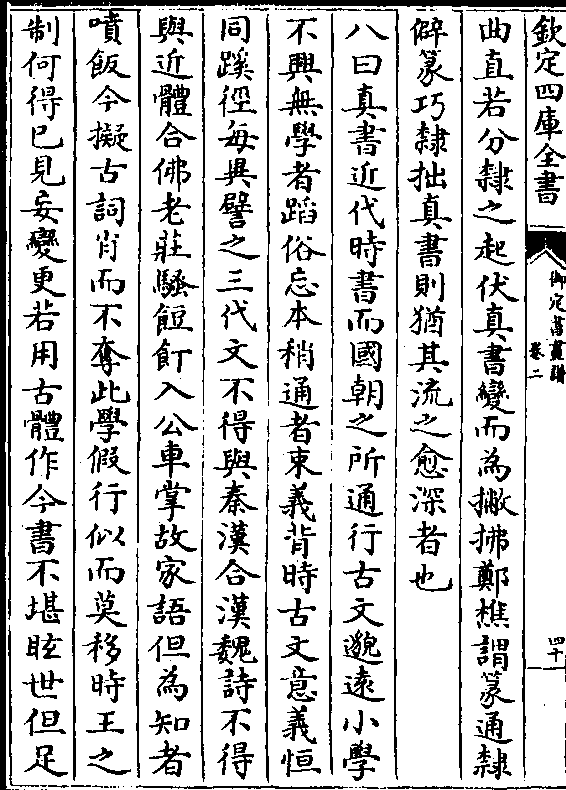 欽定四庫全書
御定書畫譜
卷二
四十一
曲直若分隸之起伏真書變而為撇拂鄭樵謂篆通隸
僻篆巧隸拙真書則猶其流之愈深者也
八曰真書近代時書而國朝之所通行古文邈遠小學
不興無學者蹈俗忘本稍通者束義背時古文意義恒
同蹊徑每與譬之三代文不得與秦漢合漢魏詩不得
與近體合佛老莊騷飣飣入公車掌故家語但為知者
噴飯今擬古詞肖而不奪此學假行似而莫移時王之
制何得已見妄變更若用古體作今書不堪眩世但足